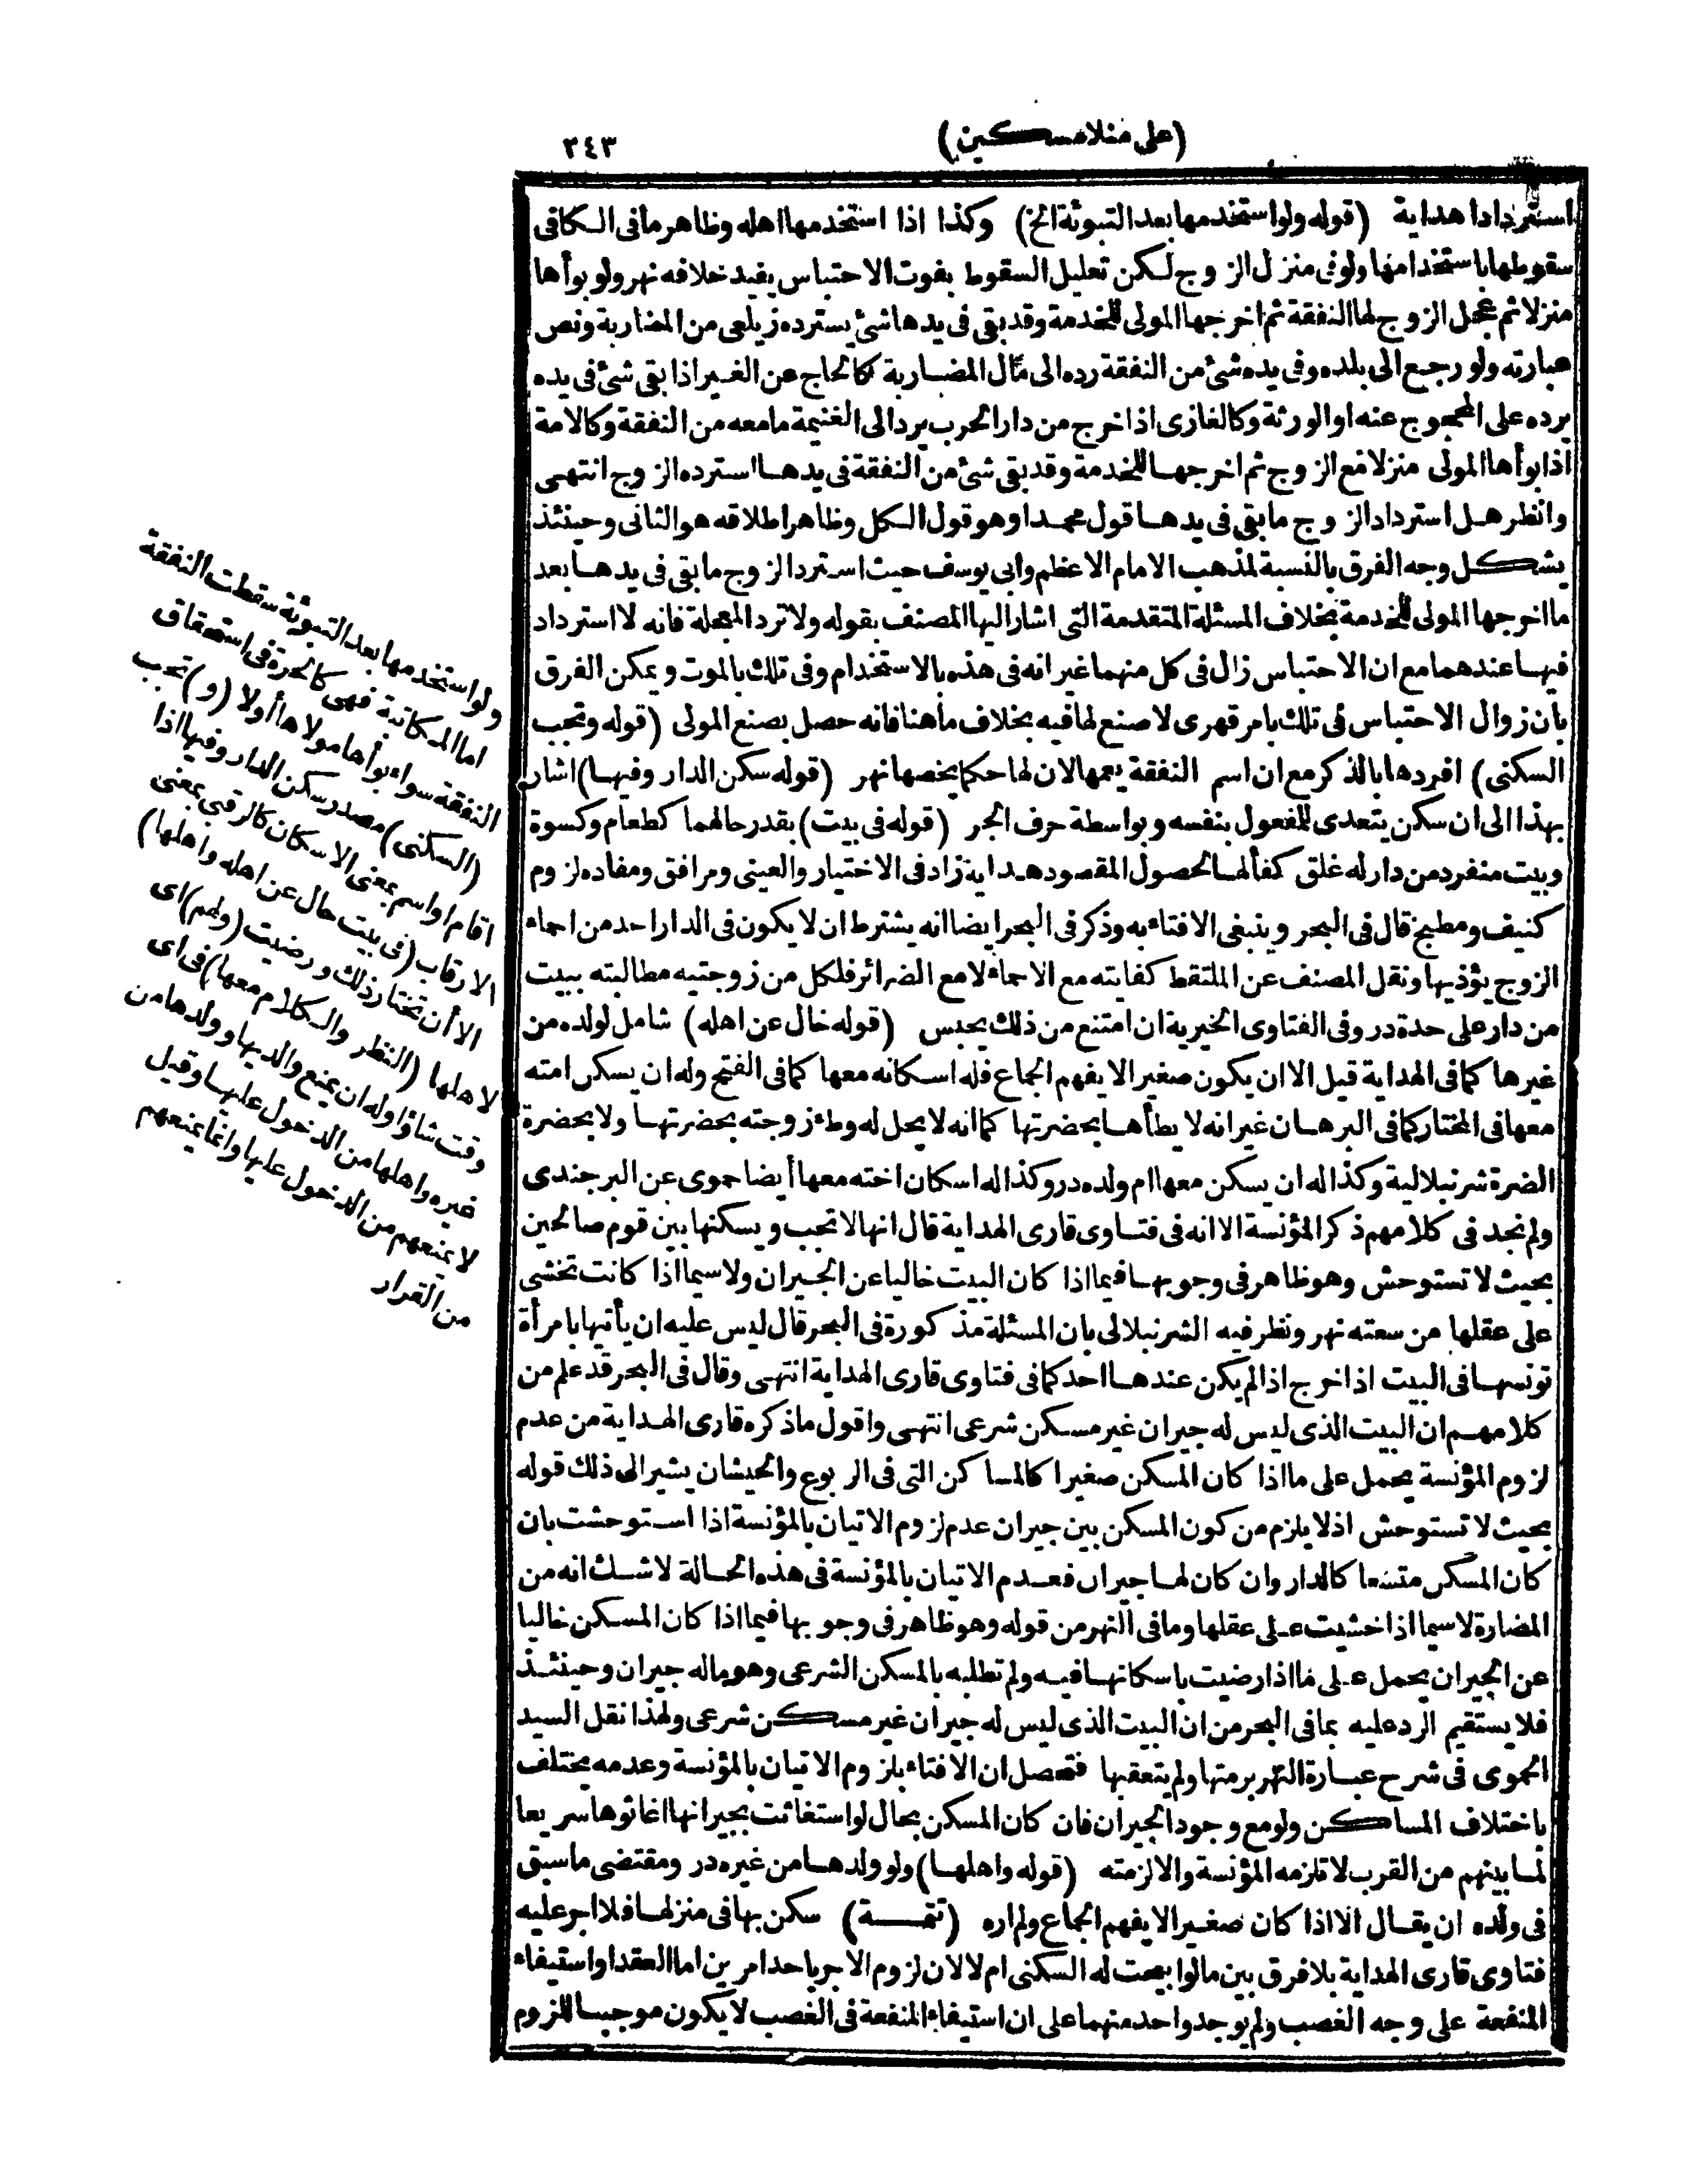 (على منلا مسكين)
٢٤٣
استردادا هداية (قوله ولو استخدمها بعد التبوئة الخ) وكذا اذا استخدمها اهله وظاهر ما فى الكافى
سقوطها باستخدامها ولو فى منزل الزوج لكن تعليل السقوط بفوت الاحتباس يفيد خلافه نهر ولو بوأها
منزلا ثم عجل الزوج لها النفقة ثم اخرجها المولى للخدمة وقد بقى فى يدها شئ يسترده زيلعى من المضاربة ونص
عبارته ولو رجع الى بلده وفى يده شئ من النفقة رده الى مال المضاربة كالحاج عن الغير اذا بقى شئ فى يده
يرده على المحجوج عنه او الورثة وكالغازى اذا خرج من دار الحرب يرد الى الغنيمة ما معه من النفقة وكالامة
اذا بوأها المولى منزلا مع الزوج ثم اخرجها للخدمة وقد بقى شئ من النفقة فى يدها استرده الزوج انتهى
وانظر هل استرداد الزوج ما بقى فى يدها قول محمد او هو قول الكل وظاهر اطلاقه هو الثانى وحينئذ
يشكل وجه الفرق بالنسبة لمذهب الامام الاعظم وابى يوسف حيث استرد الزوج ما بقى فى يدها بعد
ما اخرجها المولى للخدمة بخلاف المسئلة المتقدمة التى اشار اليها المصنف بقوله ولا ترد المعجلة فانه لا استرداد
فيها عندهما مع ان الاحتباس زال فى كل منهما غير انه فى هذه بالاستخدام وفى تلك بالموت ويمكن الفرق
بان زوال الاحتباس فى تلك بامر قهرى لا صنع لها فيه بخلاف ما هنا فانه حصل بصنع المولى (قوله وتجب
السكنى) افردها بالذكر مع ان اسم النفقة يعمها لان لها حكما يخصها نهر (قوله سكن الدار وفيها) اشار
بهذا الى ان سكن يتعدى للمفعول بنفسه وبواسطة حرف الجر (قوله فى بيت) بقدر حالهما كطعام وكسوة
وبيت منفرد من دار له غلق كفأ لها لحصول المقصود هداية زاد فى الاختيار والعينى ومرافق ومفاده لزوم
كنيف ومطبخ قال فى البحر وينبغى الافتاء به وذكر فى البحر ايضا انه يشترط ان لا يكون فى الدار احد من احماء
الزوج يؤذيها ونقل المصنف عن الملتقط كفايته مع الاحماء لا مع الضرائر فلكل من زوجتيه مطالبته ببيت
من دار على حدة در وفى الفتاوى الخيرية ان امتنع من ذلك يحبس (قوله خال عن اهله) شامل لولده من
غيرها كما فى الهداية قيل الا ان يكون صغيرا لا يفهم الجماع فله اسكانه معها كما فى الفتح وله ان يسكن امته
معها فى المختار كما فى البرهان غير انه لا يطأها بحضرتها كما انه لا يحل له وطء زوجته بحضرتها ولا بحضرة
الضرة شرنبلالية وكذا له ان يسكن معها ام ولده در وكذا له اسكان اخته معها أيضا حموى عن البرجندى
ولم نجد فى كلامهم ذكر المؤنسة الا انه فى فتاوى قارى الهداية قال انها لا تجب ويسكنها بين قوم صالحين
بحيث لا تستوحش وهو ظاهر فى وجوبها فيما اذا كان البيت خاليا عن الجيران ولا سيما اذا كانت تخشى
على عقلها من سعته نهر ونظر فيه الشرنبلالى بان المسئلة مذكورة فى البحر قال ليس عليه ان يأتيها بامرأة
تونسها فى البيت اذا خرج اذا لم يكن عندها احد كما فى فتاوى قارى الهداية انتهى وقال فى البحر قد علم من
كلامهم ان البيت الذى ليس له جيران غير مسكن شرعى انتهى واقول ما ذكره قارى الهداية من عدم
لزوم المؤنسة يحمل على ما اذا كان المسكن صغيرا كالمساكن التى فى الربوع والحيشان يشير الى ذلك قوله
بحيث لا تستوحش اذ لا يلزم من كون المسكن بين جيران عدم لزوم الاتيان بالمؤنسة اذا استوحشت بان
كان المسكن متسعا كالدار وان كان لها جيران فعدم الاتيان بالمؤنسة فى هذه الحالة لا شك انه من
المضارة لا سيما اذا خشيت على عقلها وما فى النهر من قوله وهو ظاهر فى وجوبها فيما اذا كان المسكن خاليا
عن الجيران يحمل على ما اذا رضيت باسكانها فيه ولم تطلبه بالمسكن الشرعى وهو ماله جيران وحينئذ
فلا يستقيم الرد عليه بما فى البحر من ان البيت الذى ليس له جيران غير مسكن شرعى ولهذا نقل السيد
الحموى فى شرح عبارة النهر برمتها ولم يتعقبها فتحصل ان الافتاء بلزوم الاتيان بالمؤنسة وعدمه يختلف
باختلاف المساكن ولو مع وجود الجيران فان كان المسكن بحال لو استغاثت بجيرانها اغاثوها سريعا
لما بينهم من القرب لا تلزمه المؤنسة والا لزمته (قوله واهلها) ولو ولدها من غيره در ومقتضى ما سبق
فى ولده ان يقال الا اذا كان صغيرا لا يفهم الجماع ولم اره (تتمة) سكن بها فى منزلها فلا اجر عليه
فتاوى قارى الهداية بلا فرق بين ما لو ابيحت له السكنى ام لا لان لزوم الاجر باحد امرين اما العقد او استيفاء
المنفعة على وجه الغصب ولم يوجد واحد منهما على ان استيفاء المنفعة فى الغصب لا يكون موجبا للزوم
ولو استخدمها بعد التبوئة سقطت النفقة
اما المكاتبة فهى كالحرة فى استحقاق
النفقة سواء بوأها مولاها أو لا (و) تجب
(السكنى) مصدر سكن الدار وفيها اذا
اقام او اسم بمعنى الاسكان كالرقبى بمعنى
الارقاب (فى بيت خال عن اهله واهلها)
الا أن تختار ذلك ورضيت (ولهم) اى
لاهلها (النظر والكلام معها) فى اى
وقت شاؤا وله ان يمنع والديها وولدها من
غيره واهلها من الدخول عليها وقيل
لا يمنعهم من الدخول عليها وانما يمنعهم
من القرار